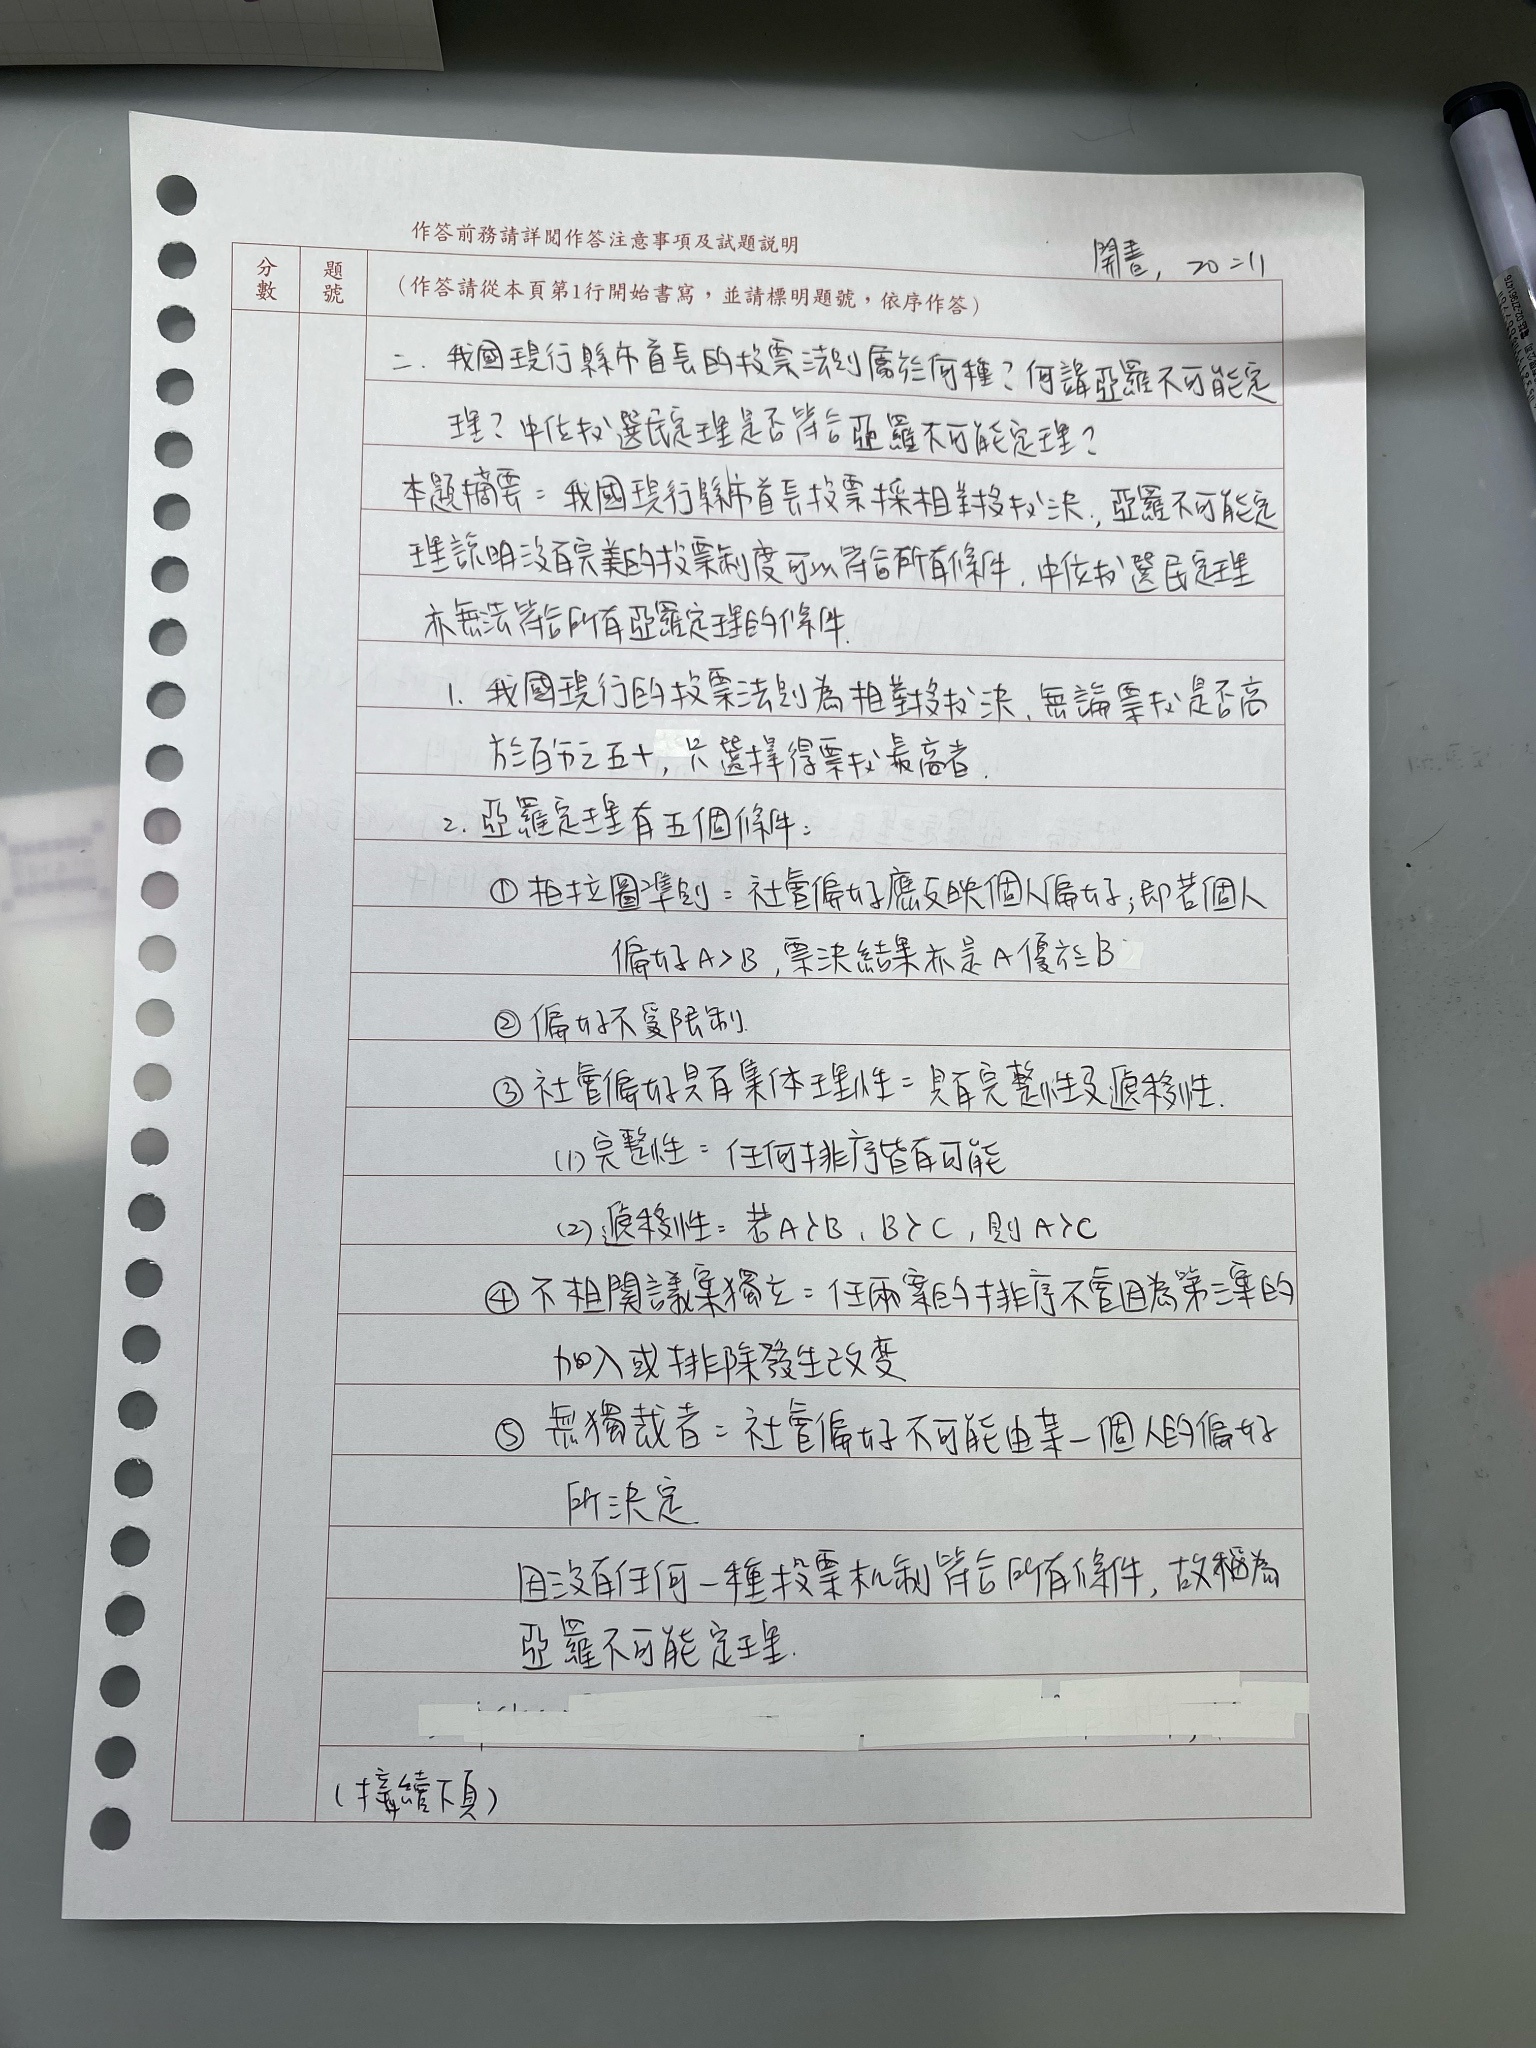 作答前務請詳閱作答注意事項及試題說明
開書, 20=11
分數
題號
(作答請從本頁第1行開始書寫,並請標明題號,依序作答)
二. 我國現行縣市首長的投票法則屬於何種?何謂亞羅不可能定
理?中位數選民定理是否符合亞羅不可能定理?
本題摘要=我國現行縣市首長投票採相對多數決, 亞羅不可能定
理說明沒有完美的投票制度可以符合所有條件. 中位數選民定理
亦無法符合所有亞羅定理的條件.
1. 我國現行的投票法則為相對多數決, 無論票數是否高
於百分之五十, 只選擇得票數最高者.
2. 亞羅定理有五個條件:
① 柏拉圖準則=社會偏好應反映個人偏好;即若個人
偏好A>B, 票決結果亦是A優於B
② 偏好不受限制.
③ 社會偏好具有集体理性=具有完整性及遞移性.
(1) 完整性=任何排序皆有可能
(2) 遞移性=若A>B, B>C, 則A>C
④ 不相關議案獨立=任兩案的排序不會因為第三案的
加入或排除發生改变
⑤ 無獨裁者=社會偏好不可能由某一個人的偏好
所決定.
因沒有任何一種投票机制符合所有條件, 故稱為
亞羅不可能定理.
(接續下頁)